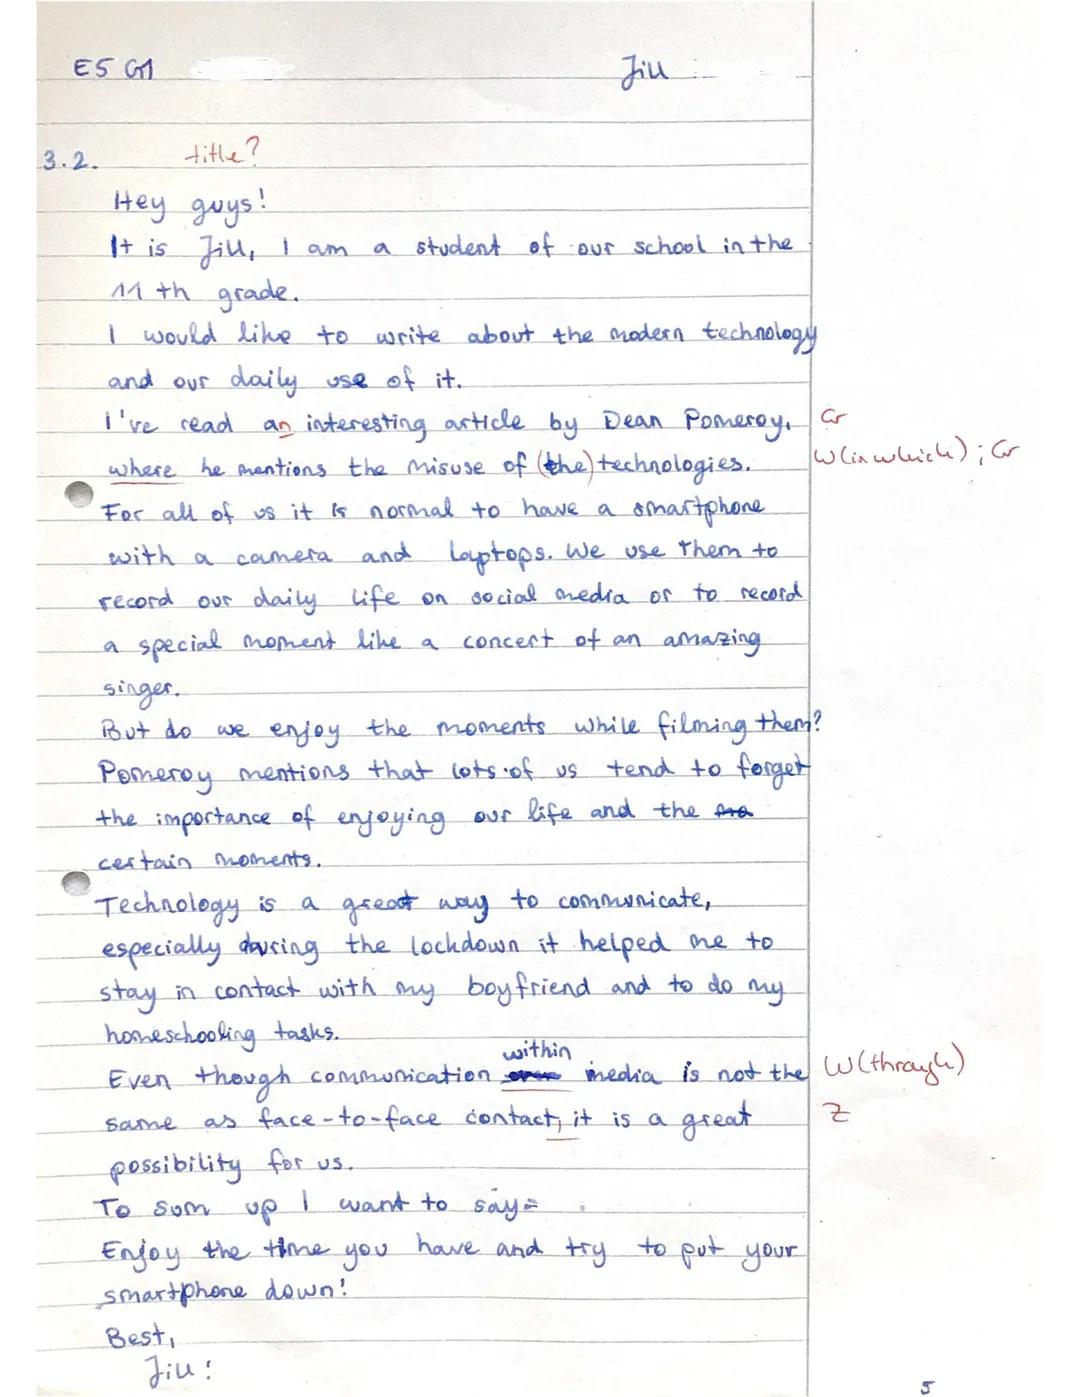 E5 G1 Jill
3.2. title?
Hey guys!
It is Jill, I am a student of our school in the
11th grade.
I would like to write about the modern technology
and our daily use of it.
I've read an interesting article by Dean Pomeroy, Gr
where he mentions the misuse of (the) technologies. W(in which); Gr
For all of us it is normal to have a smartphone
with a camera and laptops. We use them to
record our daily life on social media or to record
a special moment like a concert of an amazing
singer.
But do we enjoy the moments while filming them?
Pomeroy mentions that lots of us tend to forget
the importance of enjoying our life and the
certain moments.
Technology is a great way to communicate,
especially during the lockdown it helped me to
stay in contact with my boyfriend and to do my
homeschooling tasks.
within
Even though communication media is not the W(through)
same as face-to-face contact, it is a great Z
possibility for us.
To sum up I want to say:
Enjoy the time you have and try to put your
smartphone down!
Best,
Jill!
5